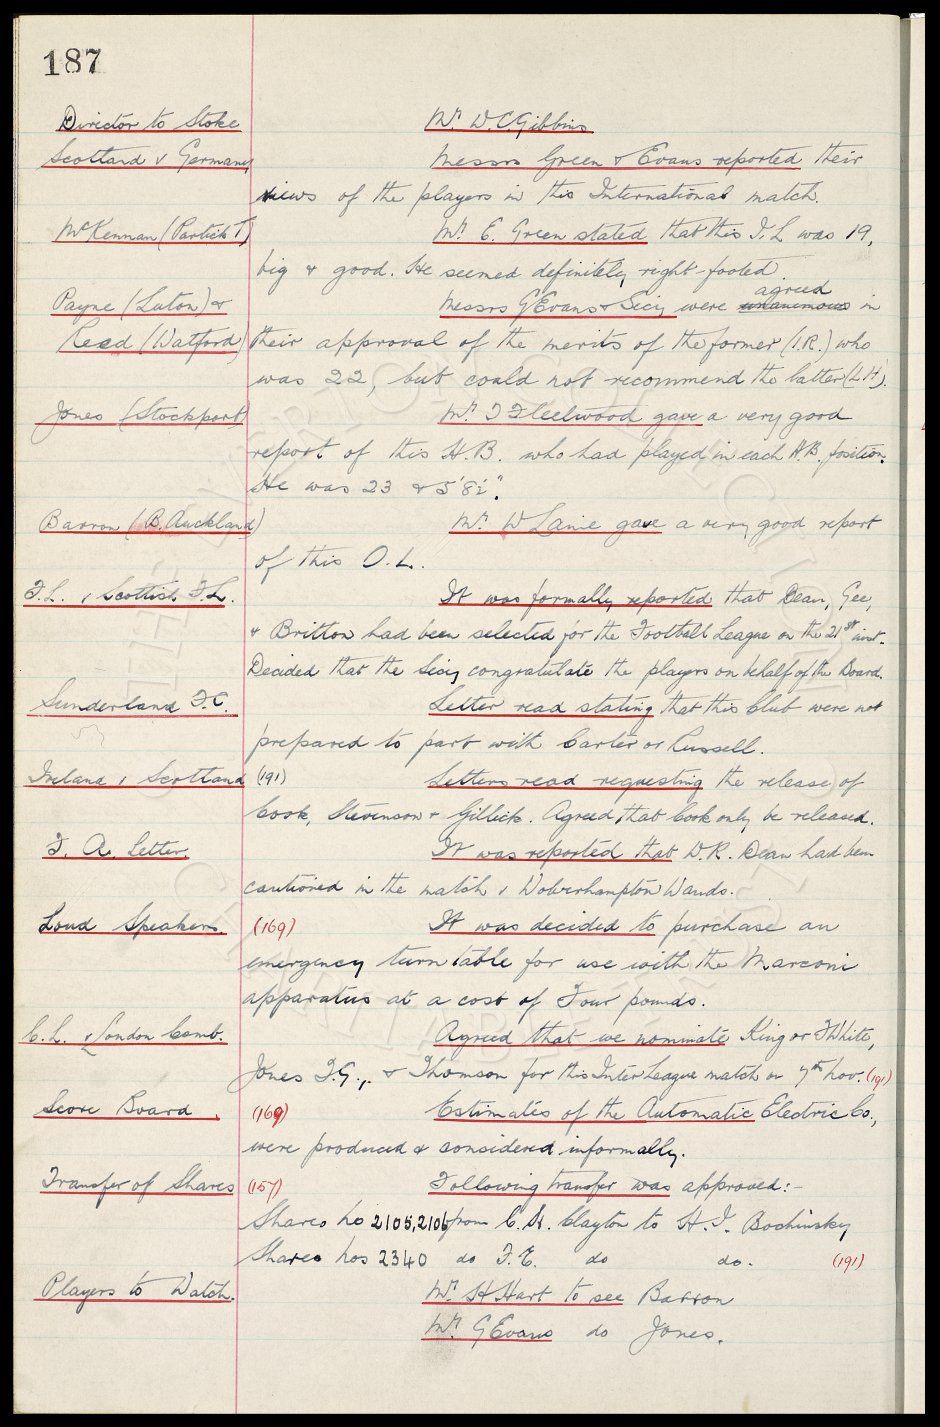 187
Director to Stoke Mr. W.C. Gibbins
Scotland v Germany Messrs Green & Evans reported their
views of the players in this International match.
McKennan (Partick T) Mr. E. Green stated that this I.L was 19,
big & good. He seemed definitely right-footed.
Payne (Luton) & Messrs G Evans & Secy were unanimous agreed in
Reed (Watford) their approval of the merits of the former (I.R.) who
was 22, but could not recommend the latter (L.H).
Jones (Stockport) Mr. J Fleetwood gave a very good
report of this H.B. who had played in each H.B. position.
He was 23 & 5'8½".
Barron (B. Auckland) Mr. W Lanie gave a very good report
of this O.L.
F.L. v Scottish F.L. It was formally reported that Dean, Gee,
& Britton had been selected for the Football League on the 21st inst.
Decided that the Secy congratulate the players on behalf of the Board.
Sunderland F.C. Letter read stating that this Club were not
prepared to part with Carter or Russell.
Ireland v Scotland (191) Letters read requesting the release of
Cook, Stevenson & Gillick. Agreed that Cook only be released.
F. A. Letter. It was reported that W.R. Dean had been
cautioned in the match v Wolverhampton Wands.
Loud Speakers. (169) It was decided to purchase an
emergency turn table for use with the Marconi
apparatus at a cost of Four pounds.
C.L. v London Comb. Agreed that we nominate King or J White,
Jones T.G., & Thomson for this Inter League match on 7th Nov. (191)
Score Board. (169) Estimates of the Automatic Electric Co.,
were produced & considered informally.
Transfer of Shares (157) Following transfer was approved:-
Shares No 2105,2106 from C. H. Clayton to H. J. Bochinsky
Shares nos 2340 do F.E. do do. (191)
Players to Watch. Mr. H Hart to see Barron
Mr. G Evans do Jones.